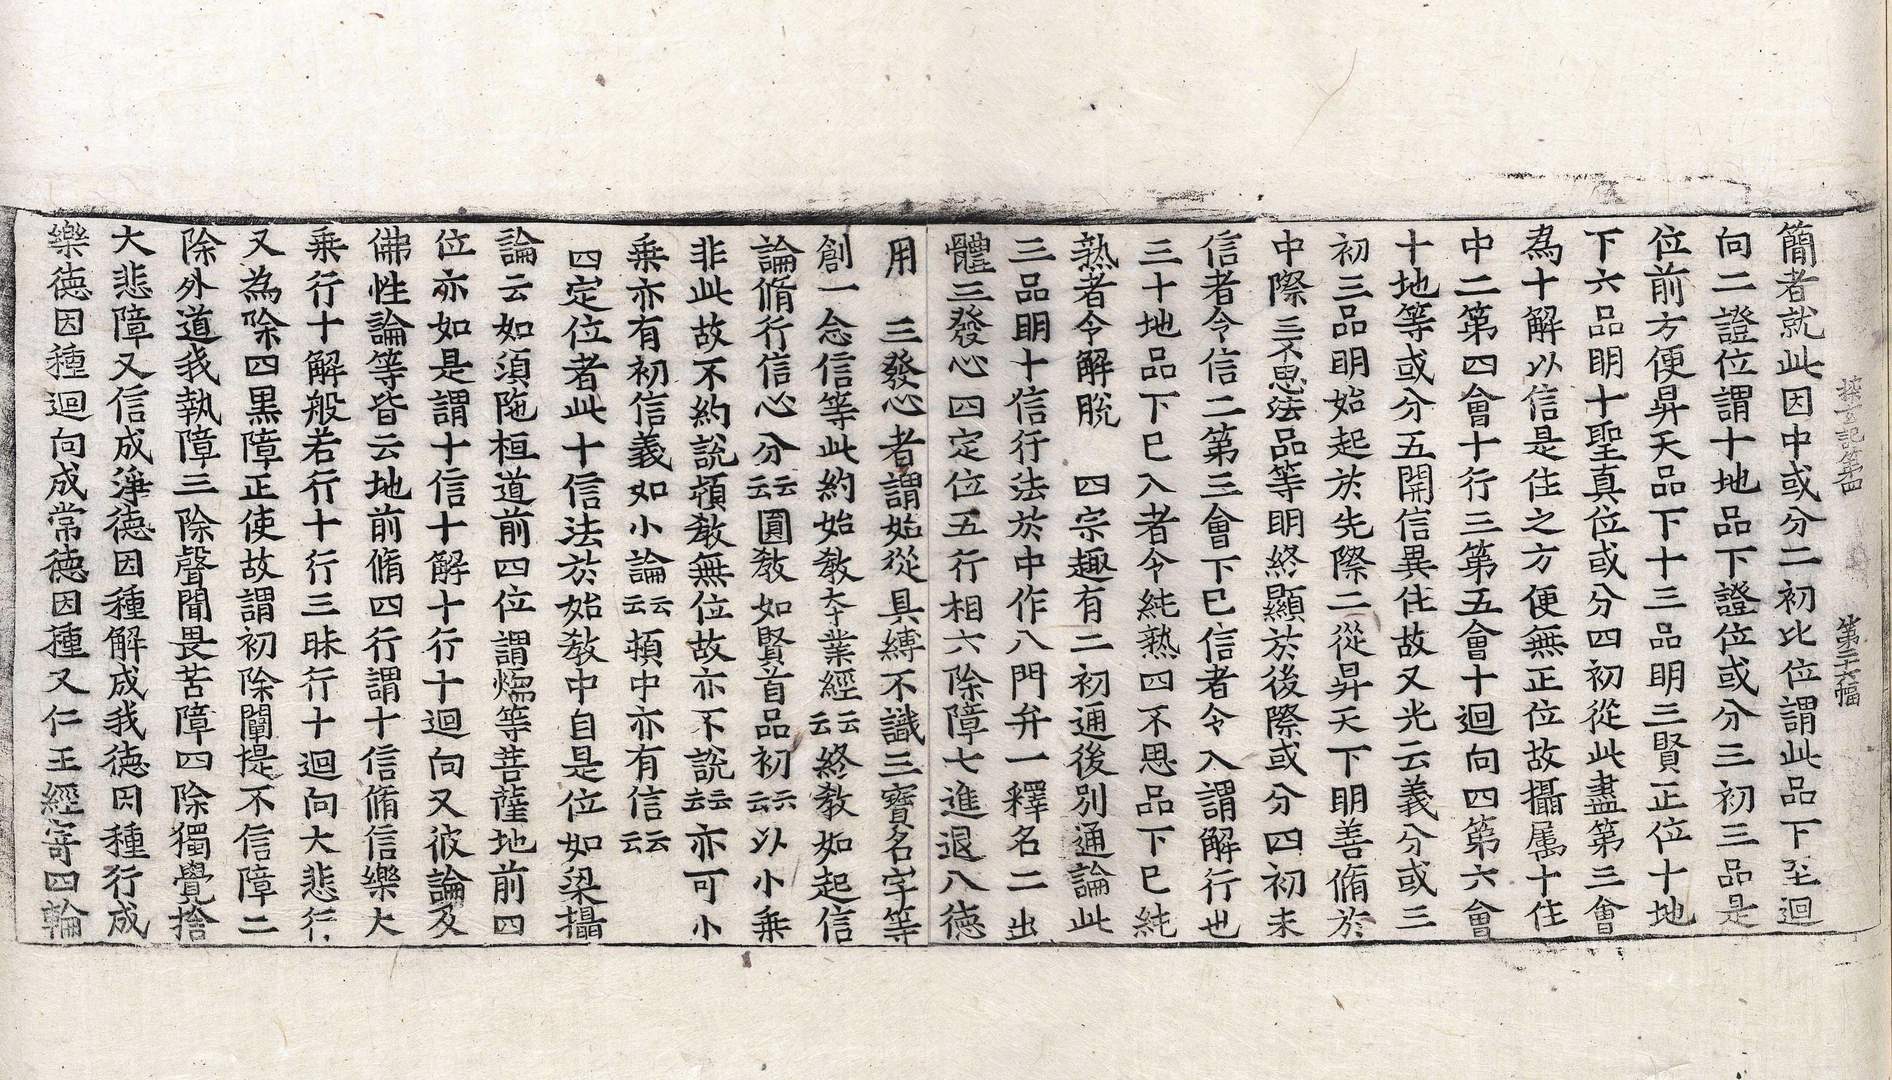 探玄記第四 第三六幅
簡者就此因中或分二初比位謂此品下至迴
向二證位謂十地品下證位或分三初三品是
位前方便昇天品下十三品明三賢正位十地
下六品明十聖真位或分四初從此盡第三會
為十解以信是住之方便無正位故攝属十住
中二第四會十行三第五會十迴向四第六會
十地等或分五開信異住故又光云義分或三
初三品明始起於先際二從昇天下明善脩於
中際三不思法品等明終顯於後際或分四初未
信者令信二第三會下已信者令入謂解行也
三十地品下已入者令純熟四不思品下已純
熟者令解脫　四宗趣有二初通後別通論此
三品明十信行法於中作八門弁一釋名二出
體三發心四定位五行相六除障七進退八德
用　三發心者謂始從具縛不識三寶名字等
創一念信等此約始教夲業經云云終教如起信
論脩行信心分云云圓教如賢首品初云云以小乗
非此故不約說頓教無位故亦不說云云亦可小
乗亦有初信義如小論云云頓中亦有信云云
四定位者此十信法於始教中自是位如梁攝
論云如須陁桓道前四位謂煗等菩薩地前四
位亦如是謂十信十解十行十迴向又彼論及
佛性論等皆云地前脩四行謂十信脩信樂大
乗行十解般若行十行三昧行十迴向大悲行
又為除四黒障正使故謂初除闡提不信障二
除外道我執障三除聲聞畏苦障四除獨覺捨
大悲障又信成淨德因種解成我德因種行成
樂德因種迴向成常德因種又仁王經寄四輪